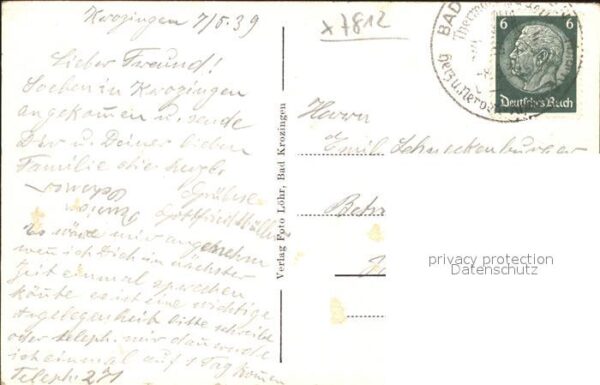 Krozingen 7/5.39
x7812
Lieber Freund!
Soeben in Krozingen
angekommen u. sende
Dir u. Deiner lieben
Familie die herzl.
Grüsse
Gottfried
Es wäre mir angenehm
wen ich Dich in nächster
Zeit einmal sprechen
könte es ist eine wichtige
Angelegenheit bitte schreibe
oder teleph. mir dan werde
ich einmal auf 1 Tag komen
Teleph. 271
Verlag Foto Löhr, Bad Krozingen
BAD
Herz u. Nerven
6 6
Deutsches Reich
Herrn
Emil Schneckenburger
privacy protection
Datenschutz